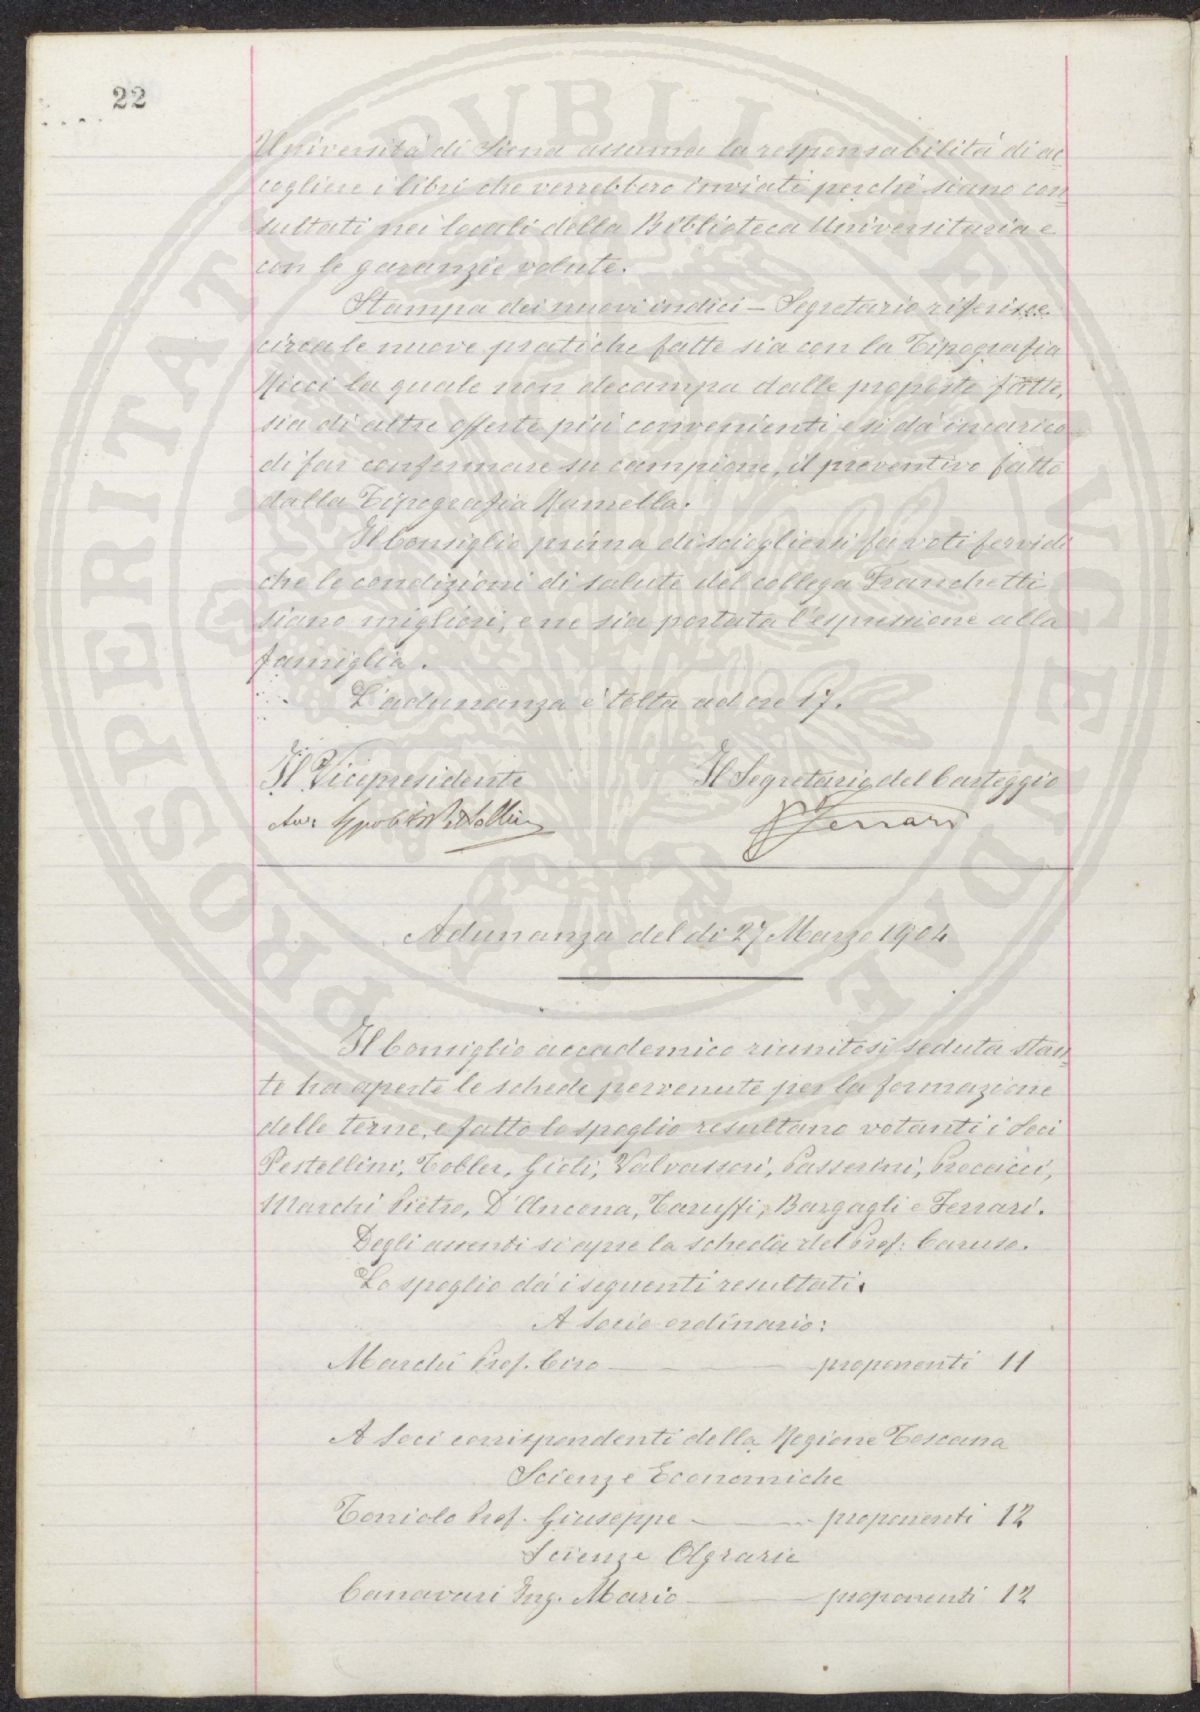 22
Università di Siena assuma la responsabilità di ac=
cogliere i libri che verrebbero inviati perchè siano con=
sultati nei locali della Biblioteca Universitaria e
con le garanzie volute.
Stampa dei nuovi indici – Segretario riferisce
circa le nuove pratiche fatte sia con la Tipografia
Ricci la quale non decampa dalle proposte fatte,
sia di altre offerte più convenienti e si dà incarico
di far confermare su campione, il preventivo fatto
dalla Tipografia Ramella.
Il Consiglio prima di sciogliersi fa voti fervidi
che le condizioni di salute del collega Franchetti
siano migliori, e ne sia portata l'espressione alla
famiglia.
L'adunanza è tolta ad ore 17.
Il Vicepresidente
Il Segretario del Carteggio
Ferrari
Adunanza del dì 27 Marzo 1904
Il Consiglio accademico riunitosi seduta stan=
te ha aperte le schede pervenute per la formazione
delle terne, e fatto lo spoglio resultano votanti i Soci
Pestellini, Tobler, Gioli, Valvassori, Passerini, Procacci,
Marchi Pietro, D'Ancona, Taruffi, Bargagli e Ferrari.
Degli assenti si apre la scheda del Prof: Caruso.
Lo spoglio dà i seguenti resultati.
A Socio ordinario:
Marchi Prof. Ciro — proponenti 11
A Soci corrispondenti della Regione Toscana
Scienze Economiche
Toniolo Prof. Giuseppe — proponenti 12
Scienze Agrarie
Canavari Ing. Mario — proponenti 12
PROSPERITATI PVBLICAE AVGENDAE